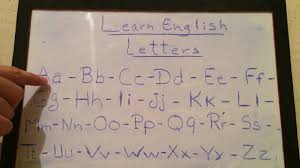 Learn English
Letters
Aa - Bb - Cc - Dd - Ee - Ff -
Gg - Hh - Ii - Jj - Kk - Ll -
Mm - Nn - Oo - Pp - Qq - Rr - Ss -
Tt - Uu - Vv - Ww - Xx - Yy - Zz